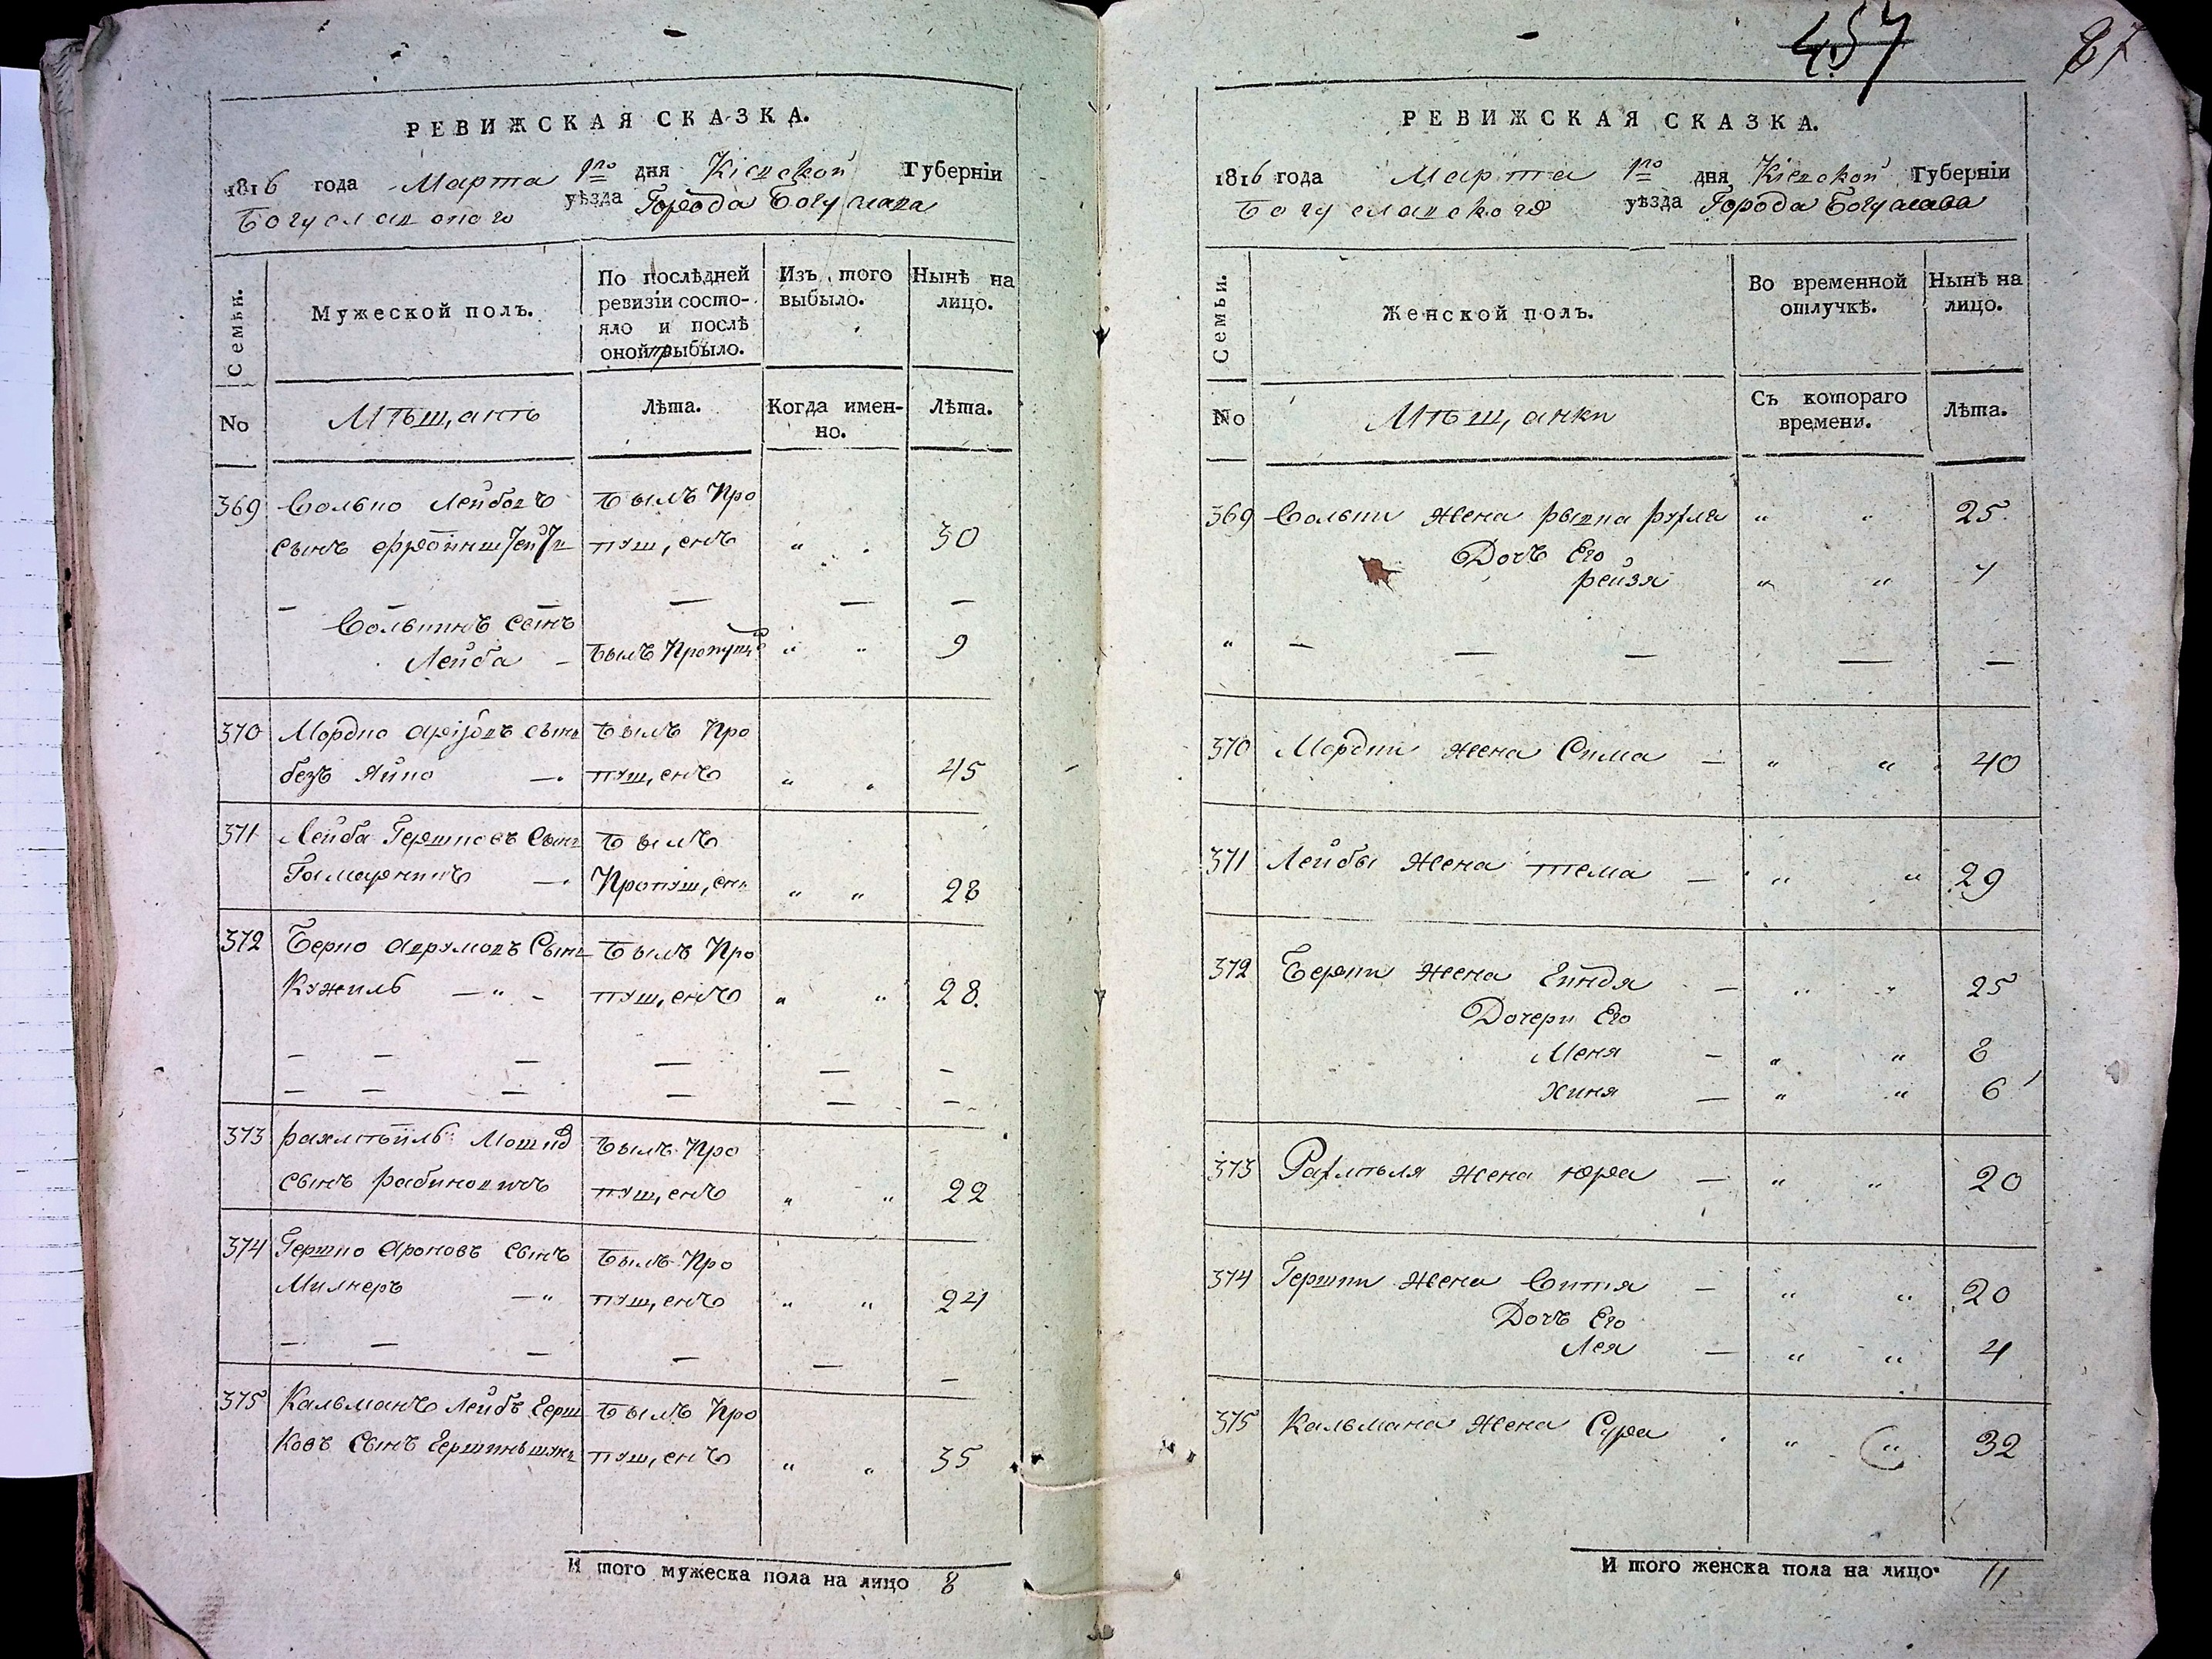 РЕВИЖСКАЯ СКАЗКА.
1816 года Марта 1го дня Кіевской Губерніи
Богуславского уѣзда Города Богуслава
Семьи.
Мужеской полъ.
По послѣдней ревизіи состо-
яло и послѣ
оной прибыло.
Изъ того выбыло.
Нынѣ на лицо.
No
Мѣщанъ
Лѣта.
Когда имен-
но.
Лѣта.
369 Волько Лейбовъ Былъ Про
сынъ пущенъ „ „ 30
— — — — — —
Волькинъ сынъ
Лейба — Былъ Пропущ „ „ 9
370 Мордко сынъ Былъ Про
безъ — пущенъ „ „ 45
371 Лейба Гершковъ Сынъ Былъ
— Пропущенъ „ „ 28
372 Берко Аврумовъ Сынъ Былъ Про
Кужиль — „ — пущенъ „ „ 28.
— — — — — —
— — — — — —
373 Рахмѣиль Мошковъ Былъ Про
сынъ Рабиновичъ пущенъ „ „ 22
374 Гершко Ароновъ сынъ Былъ Про
Милнеръ — „ пущенъ „ „ 24
— — — — — —
375 Кальманъ Лейбъ Герш Былъ Про
ковъ Сынъ пущенъ „ „ 35
И того мужеска пола на лицо 8
457
87
РЕВИЖСКАЯ СКАЗКА.
1816 года Марта 1го дня Кіевской Губерніи
Богуславского уѣзда Города Богуслава
Семьи.
Женской полъ.
Во временной отлучкѣ.
Нынѣ на лицо.
No
Мѣщанки
Съ котораго
времени.
Лѣта.
369 Вольки жена Рывка Рухля „ „ 25
Дочъ Его
Рейзя „ „
„ — — — — —
370 Мордки жена Сима — „ „ 40
371 Лейбы жена Тема — „ „ 29
372 Берки жена Гиндя — „ „ 25
Дочери Его
Меня — „ „ 8
Хиня — „ „ 6
373 Рахмѣля жена Юра — „ „ 20
374 Гершки жена Витя — „ „ 20
Дочъ Его
Лея — „ „ 4
375 Кальмана жена Сура „ „ 32
И того женска пола на лицо 11